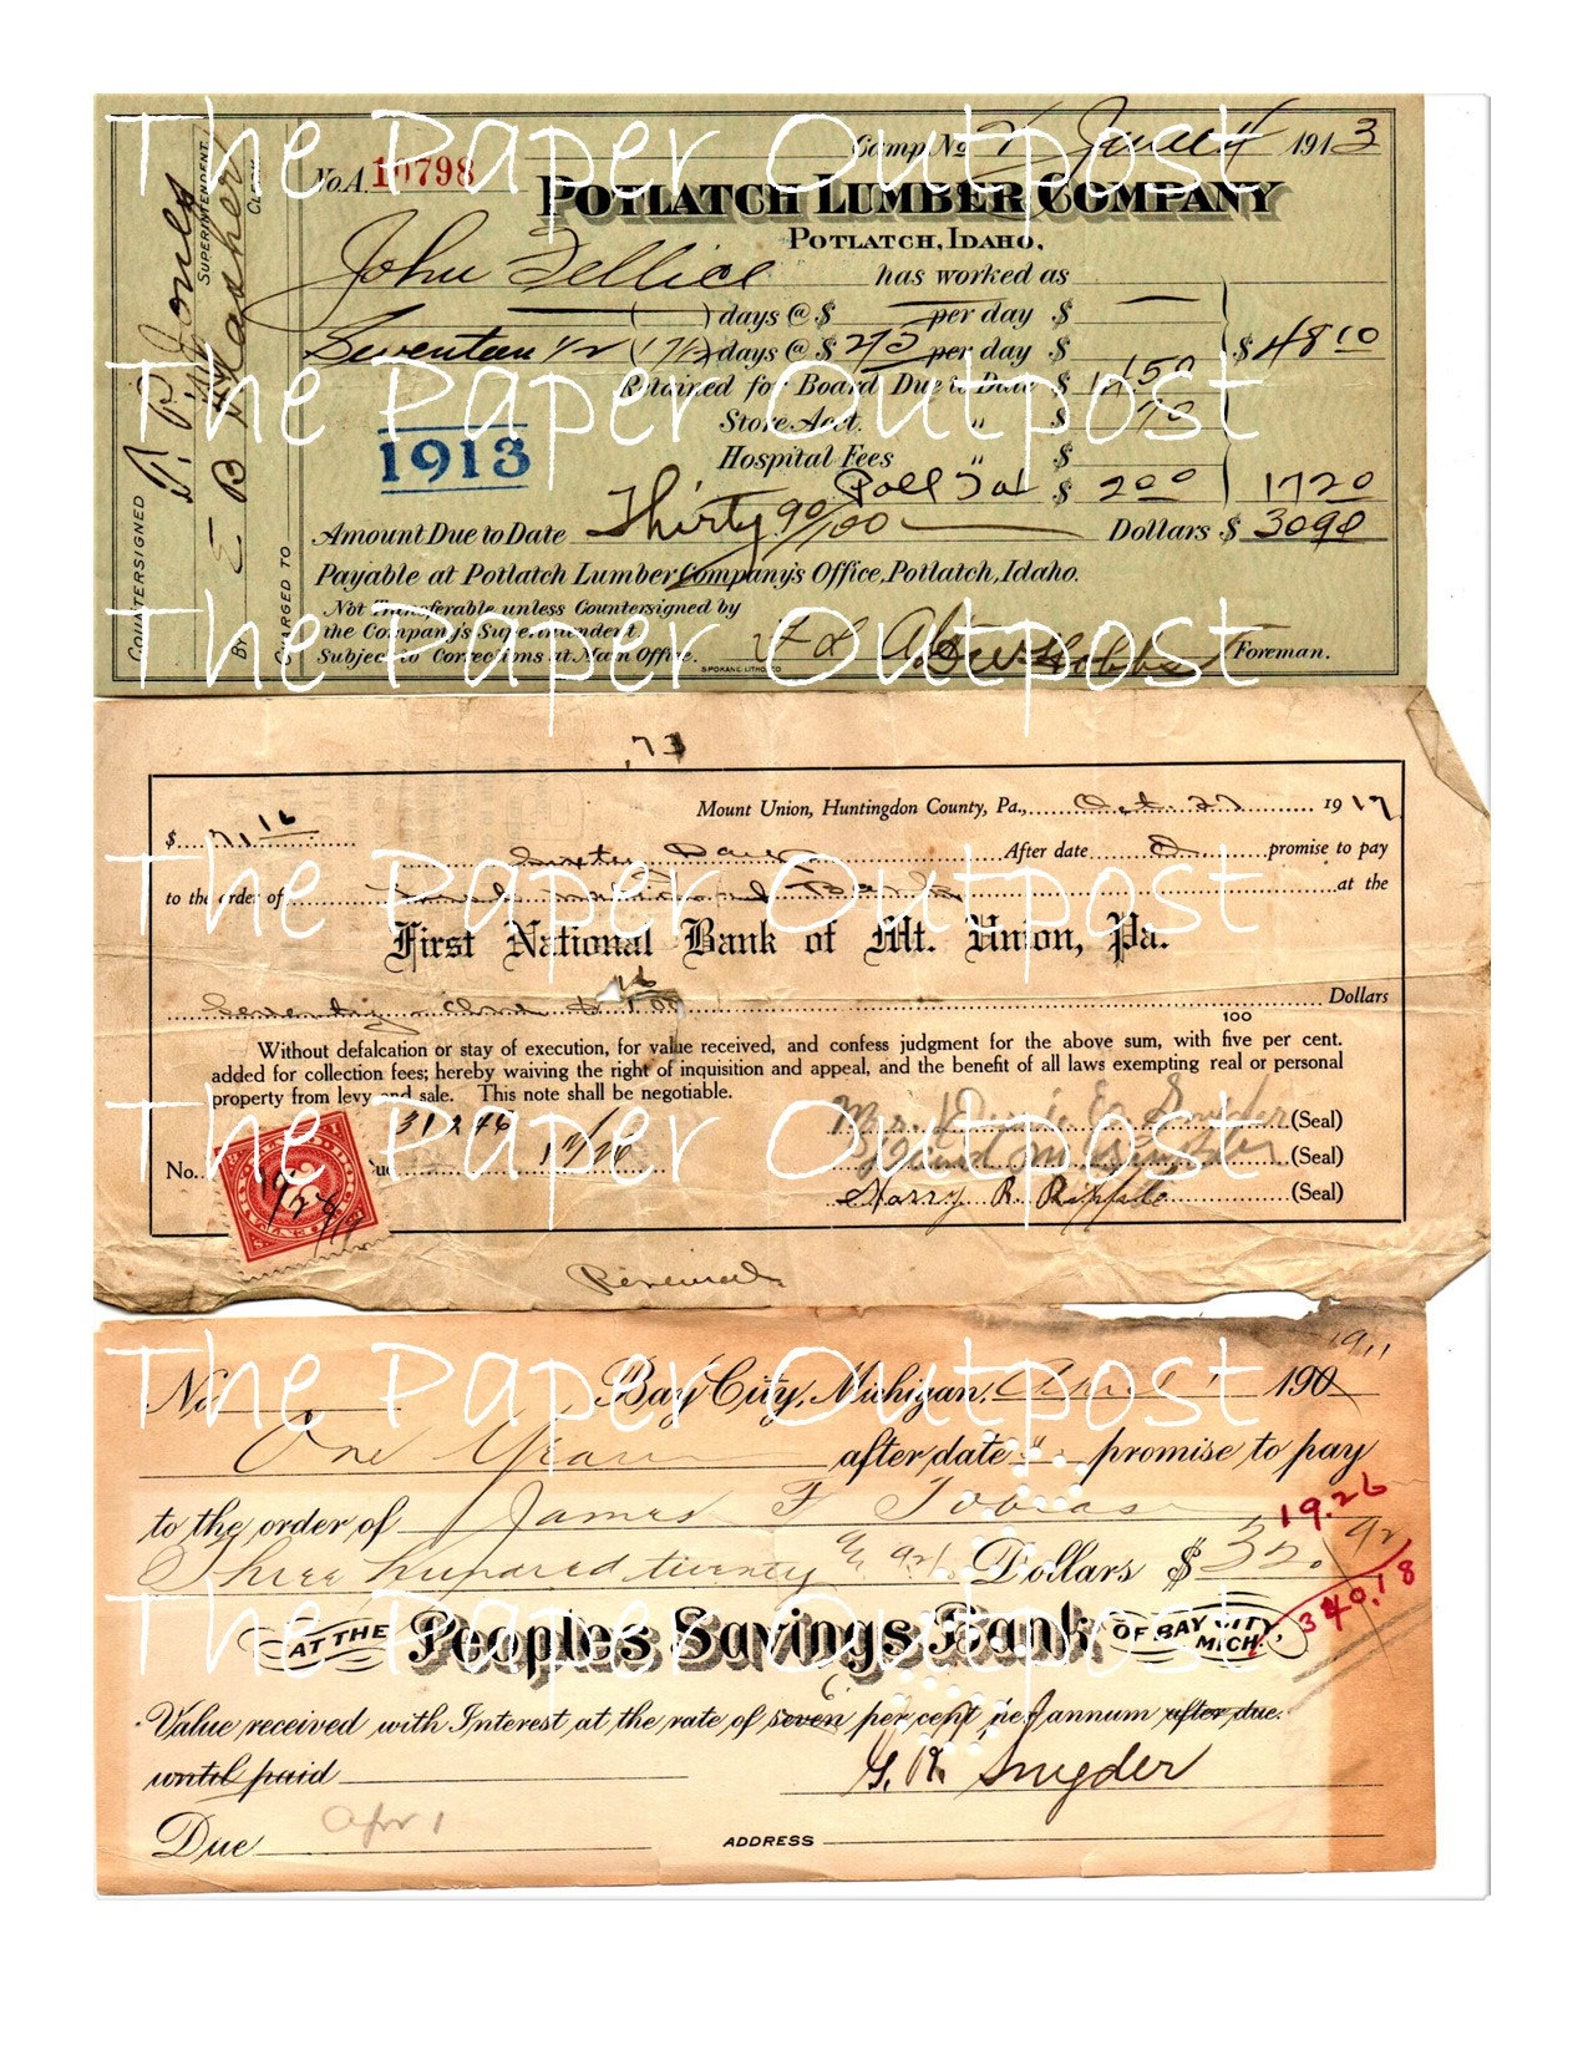 The Paper Outpost
Camp No 7 June 4 1913
No. A. 10798
POTLATCH LUMBER COMPANY
POTLATCH, IDAHO,
John has worked as
( ) days @ $ per day $
Seventeen 1/2 (17 1/2) days @ $ 275 per day $ $ 48 10
Retained for Board Due to Date $ 14 50
Store Acct. " $ 70
1913
Hospital Fees " $
Poll Tax $ 2 00 17 20
Amount Due to Date Thirty 90/100 Dollars $ 30 90
Payable at Potlatch Lumber Company's Office, Potlatch, Idaho.
Not Transferable unless Countersigned by
the Company's Superintendent.
Subject to Corrections at Main Office.
SPOKANE LITHO CO
Foreman.
COUNTERSIGNED T. P. Jones SUPERINTENDENT
BY E B CLERK
CHARGED TO
The Paper Outpost
The Paper Outpost
.73
Mount Union, Huntingdon County, Pa., Oct. 27 1917
$ 71.16
Sixty Days After date I promise to pay
to the order of First National Bank at the
The Paper Outpost
First National Bank of Mt. Union, Pa.
Seventy one & 16/100 Dollars
100
Without defalcation or stay of execution, for value received, and confess judgment for the above sum, with five per cent.
added for collection fees; hereby waiving the right of inquisition and appeal, and the benefit of all laws exempting real or personal
property from levy and sale. This note shall be negotiable.
The Paper Outpost
31246
Mrs. E. Snyder (Seal)
No. ue 12/26 (Seal)
Harry R. (Seal)
Renewal
The Paper Outpost
1911
No Bay City, Michigan, April 1 190
One Year after date " promise to pay
to the order of James F Tobias
19.26
Three hundred twenty & 92/ Dollars $ 320.92
340.18
The Paper Outpost
AT THE Peoples Savings Bank OF BAY CITY, MICH.
6
Value received with Interest at the rate of seven per cent per annum after due.
until paid
G. R. Snyder
Due Apr 1
ADDRESS